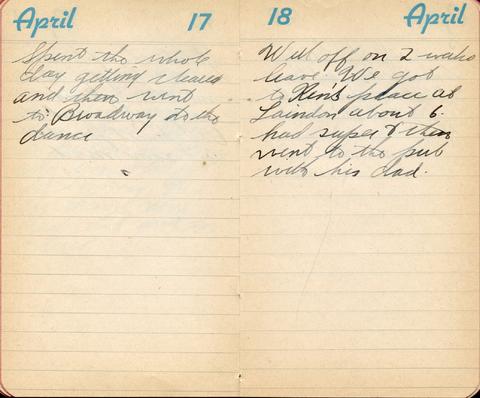 April 17
Spent the whole
day getting cleared
and then went
to Broadway to the
dance
18 April
Well off on 2 weeks
leave. We got
to Ken's place at
Laindon about 6.
had super & then
went to the pub
with his dad.